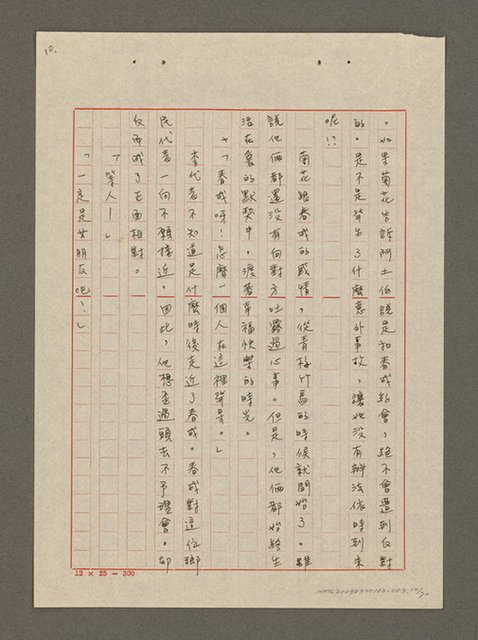 10.
。如果菊花告訴阿土伯說是和春成約會,絕不會遭到反對
的。是不是發生了什麼意外事故,讓她沒有辦法依時到來
呢!?
菊花跟春成的感情,從青梅竹馬的時候就開始了。雖
說他倆都還沒有向對方吐露過心事。但是,他倆都始終生
活在愛的默契中,渡著幸福快樂的時光。
「春成呀!怎麼一個人在這裡發呆。」
李代者不知道是什麼時後走近了春成。春成對這位鄉
民代者一向不願接近。因此,他想歪過頭去不予理會。却
反而成了正面相對。
「等人—」
「一定是女朋友吧!」
12 × 25 = 300